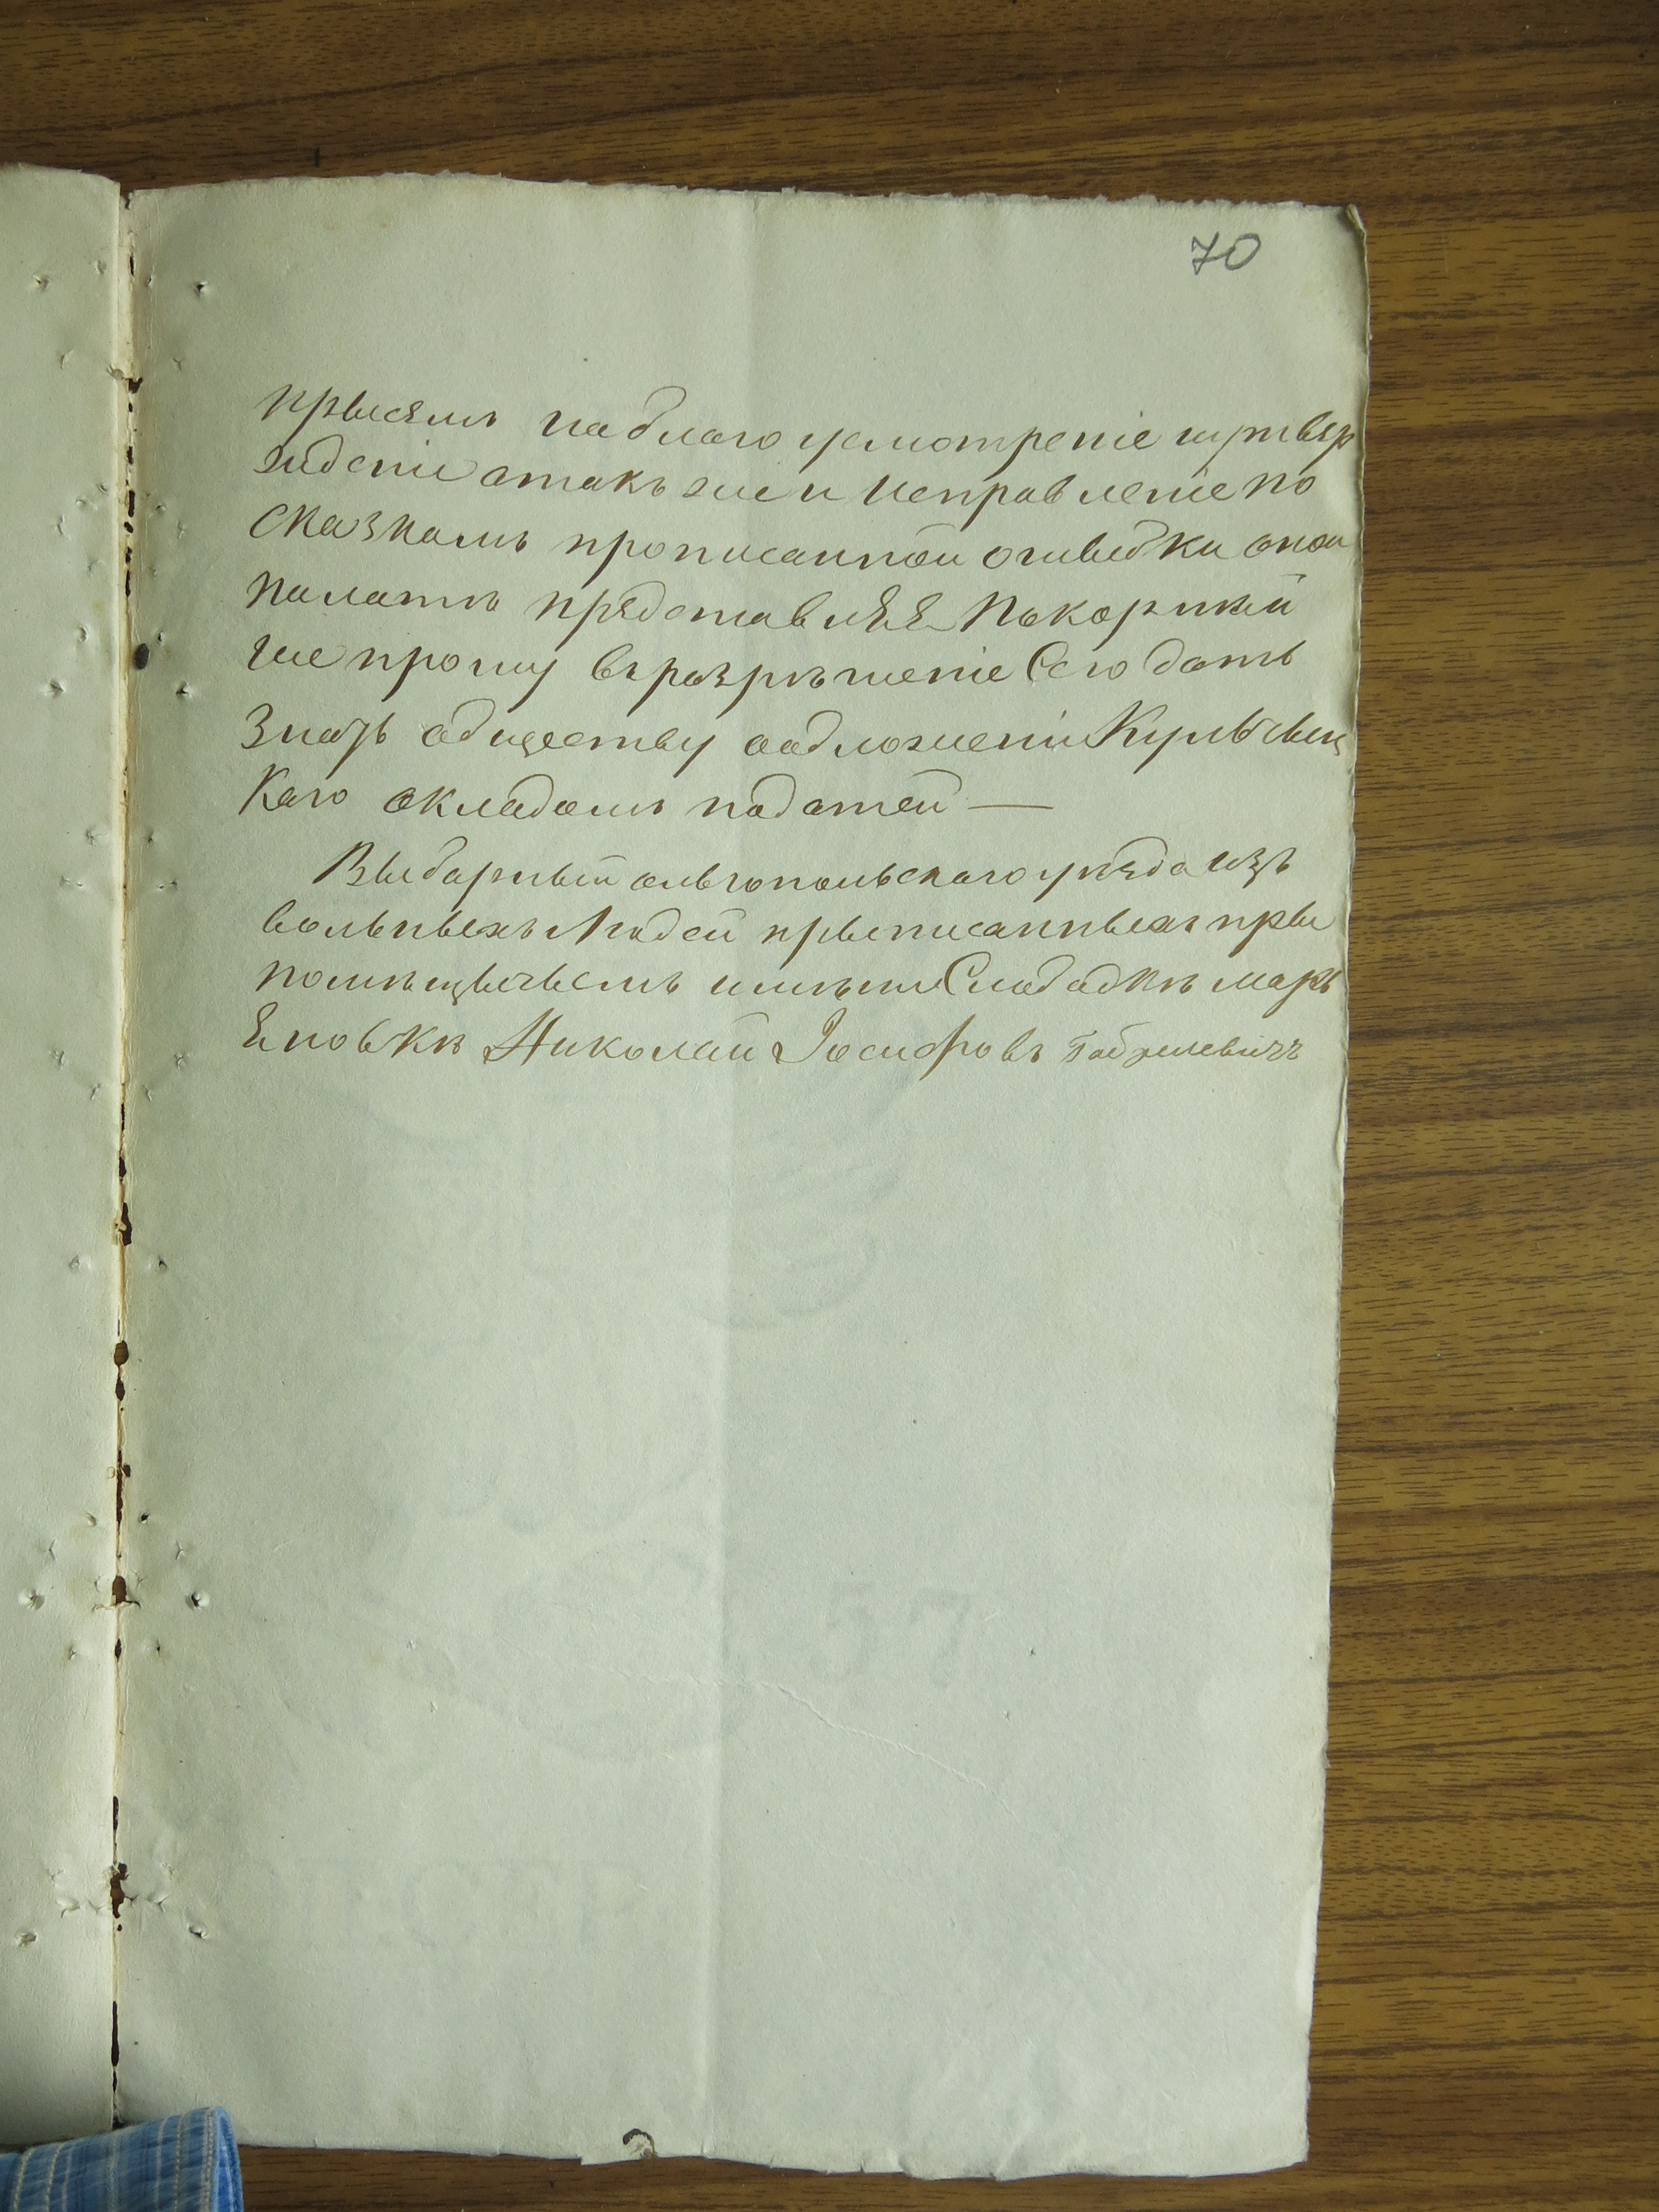 70
прысемъ наблагоусмотреніе иутвер
жденіе атакъ же и исправленіе по
сказкамъ прописанной ошыбки оной
палатѣ прядставлѣя Покорнѣй
ше прошу въразрѣшеніе Сего дать
знать обществу обложеніи Кульчыц
каго окладомъ податей —
Выборный ольгопольскаго уѣзда изъ
вольныхъ Людей прыписанныхъ пры
помѣщычьемъ имѣніи Слободкѣ марь
яновкѣ Николай Іосифовъ